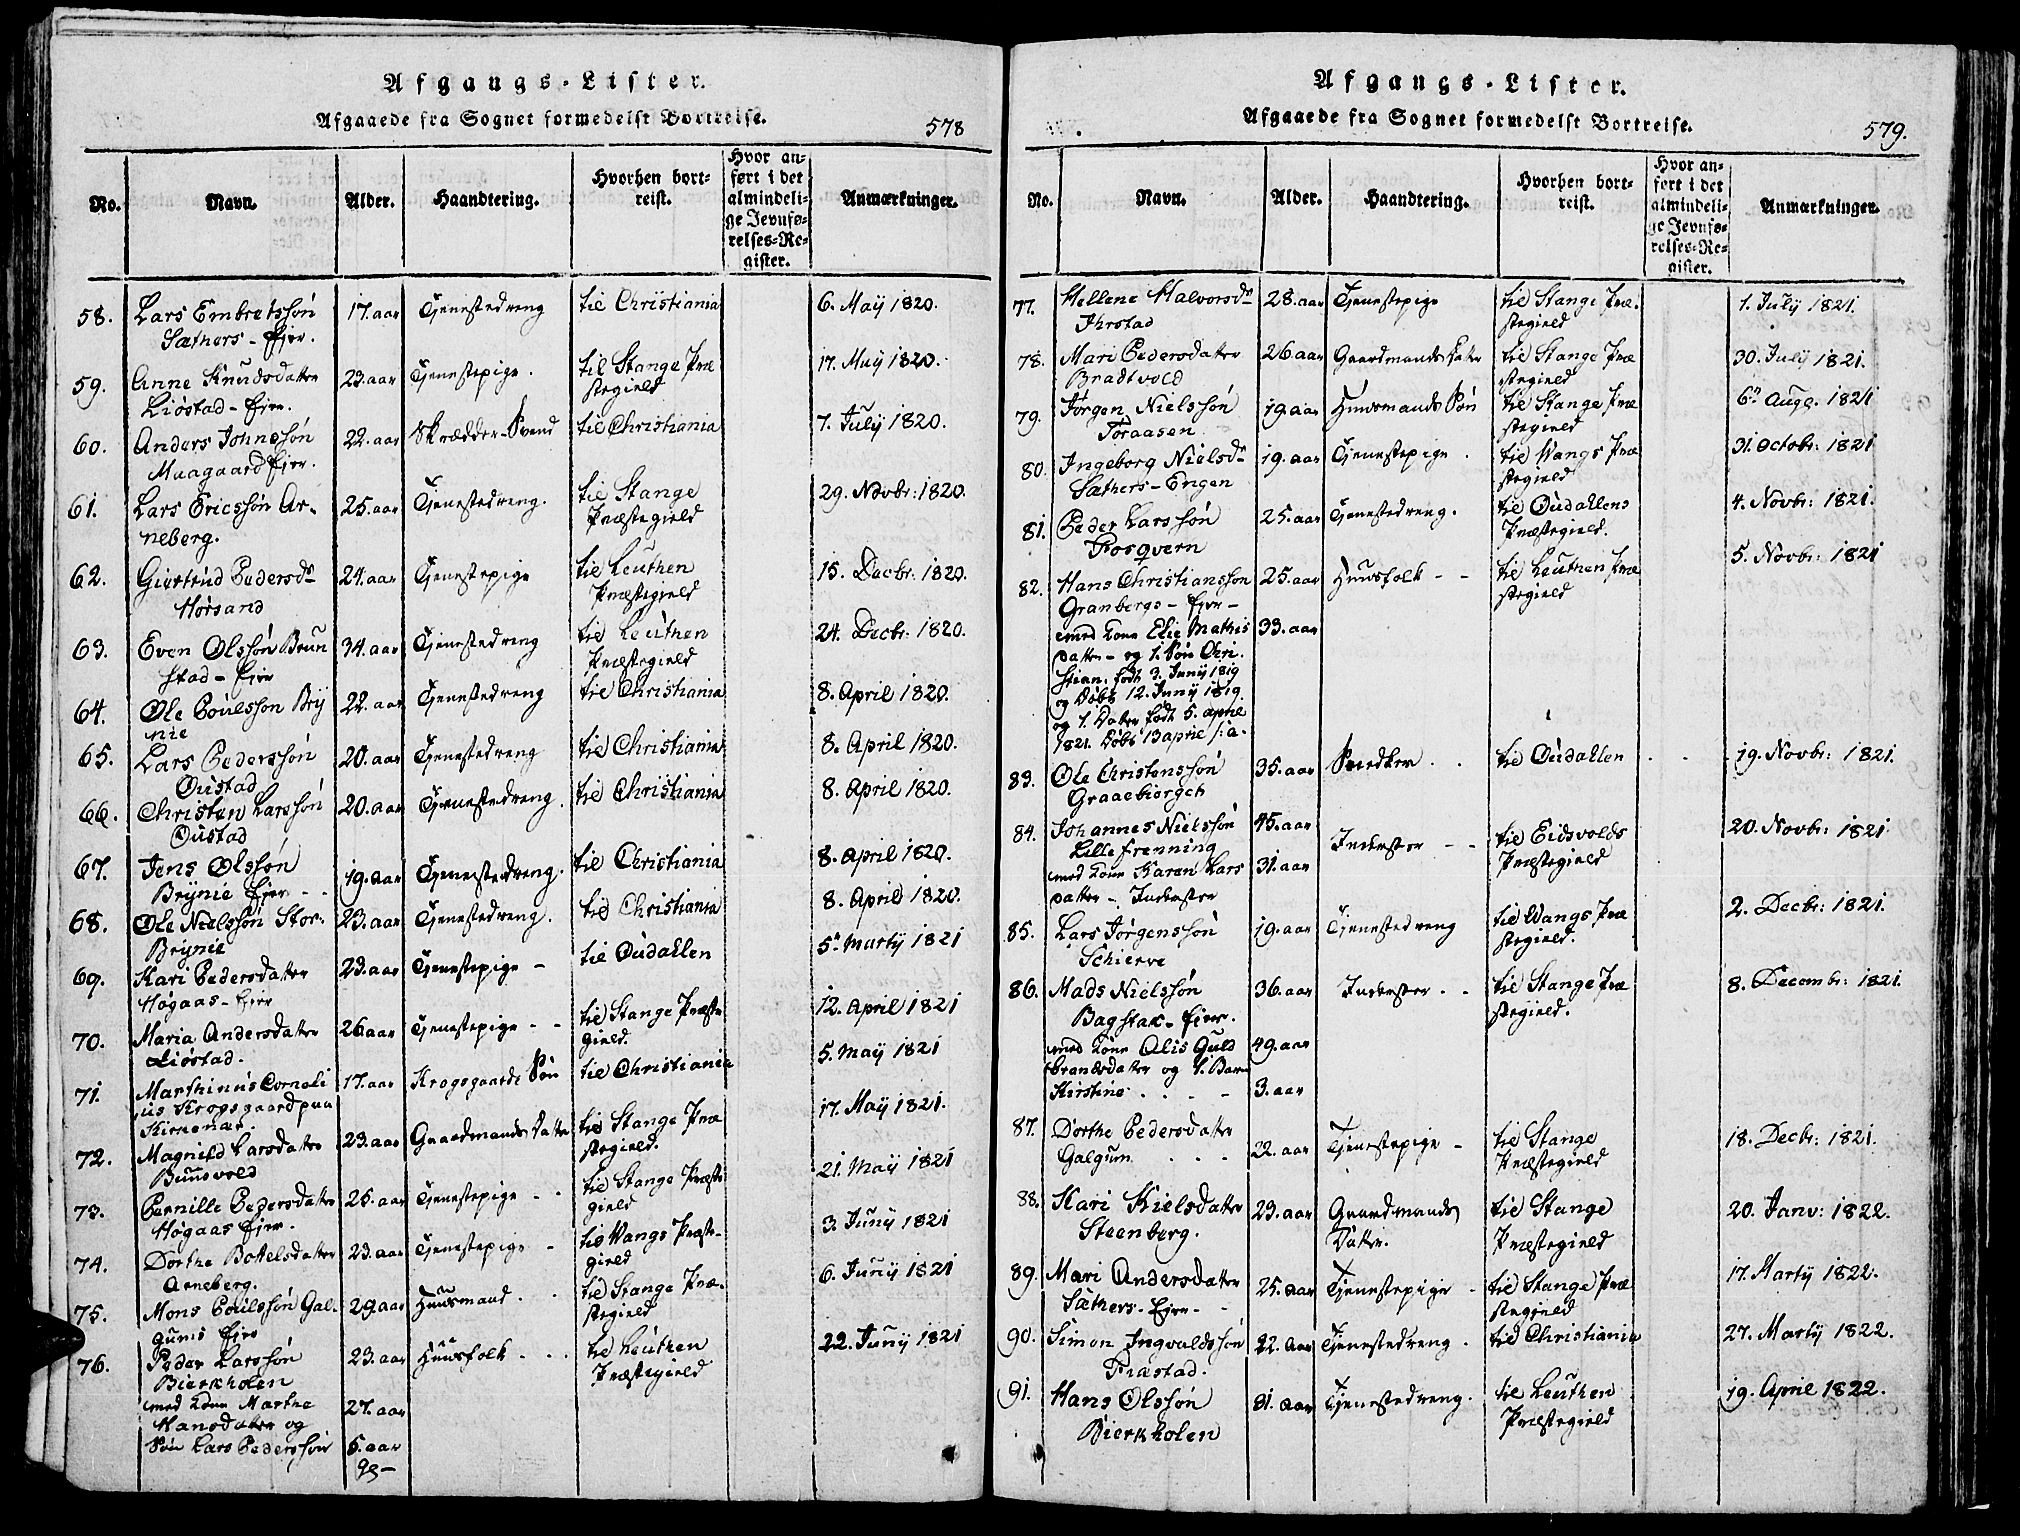 Afgangs-Lister.
Afgaaede fra Sognet formedelst Bortreise.
578
No. Navn. Alder. Haandtering. Hvorhen bortreist. Hvor anført i det almindelige Jevnførelses-Register. Anmærkninger.
58. Lars Embretssøn 17. aar Tjenestedreng til Christiania 6. Maÿ 1820.
Sæthers-Eier.
59. Anne Knudsdatter 23. aar Tjenestepige. til Stange Præ 17. Maÿ 1820.
Liøstad-Eier. stegield
60. Anders Johnssøn 22. aar Skrædder-Svend til Christiania 7. Julÿ 1820.
Maagaard Eier.
61. Lars Ericssøn Ar- 25. aar Tjenestedreng. til Stange 29. Novbr: 1820.
neberg. Præstegield
62. Giertrud Pedersdr 24. aar Tjenestepige til Leuthen 15. Decbr: 1820.
Hørsand Præstegield
63. Even Olssøn Brun 34. aar Tjenestedreng til Leuthen 24. Decbr: 1820.
stad-Eier Præstegield
64. Ole Poulssøn Brÿ 22. aar Tjenestedreng til Christiania 8. April 1820.
nie
65. Lars Pederssøn 20. aar Tjenestedreng til Christiania 8. April 1820.
Oustad
66. Christen Larssøn 20. aar Tjenestedreng. til Christiania 8. April 1820.
Oustad
67. Jens Olssøn 19. aar Tjenestedreng. til Christiania 8. April 1820.
Brÿnie Eier
68. Ole Nielssøn Stor- 23. aar Tjenestedreng. til Christiania 8. April 1820.
Brÿnie
69. Kari Pedersdatter 23. aar Tjenestepige - til Oudallen 5. Martÿ 1821
Høgaas-Eier
70. Maria Andersdatter 26 aar Tjenestepige - - til Stange Præste 12. April 1821
Liøstad. gield.
71. Marthinus Corneli 17. aar Krogsgaards Søn til Christiania 5. Maÿ 1821
us Krogsgaard paa
Kirkenær.
72. Magnild Larsdatter 23. aar Gaardmands Datter til Stange Præ 17. Maÿ 1821.
Bunsvold stegield.
73. Pernille Pedersdatter 25. aar Tjenestepige - - til Stange Præste 21. Maÿ 1821
Høgaas Eier. gield
74. Dorthe Bottelsdatter 23. aar Tjenestepige - til Wangs Præste- 3. Junÿ 1821
Arneberg. gield
75. Mons Poulssøn Gal- 29 aar Huusmand. til Stange Præ- 6. Junÿ 1821
gums Eier stegield
76. Peder Larssøn 23. aar Huusfolk - - - til Leuthen 22. Junÿ 1821
Bierkholen Præstegield
med Kone Marthe 27. aar
Hansdatter og
Søn Lars Pederssøn 5. aar

Afgangs-Lister.
Afgaaede fra Sognet formedelst Bortreise.
579.
No. Navn. Alder. Haandtering. Hvorhen bortreist. Hvor anført i det almindelige Jevnførelses-Register. Anmærkninger.
77. Hellene Halvorsdr 28. aar Tjenestepige til Stange Præ- 1. Julÿ 1821.
Ihrstad stegield
78. Mari Pedersdatter 26 aar Gaardmands Datter til Stange Præ 30. Julÿ 1821.
Bradtvold stegield
79. Jørgen Nielssøn 19. aar Huusmands Søn til Stange Præ 6. Aug. 1821
Toraasen stegield
80. Ingeborg Nielsdr 19. aar Tjenestepige. til Wangs Præ 31. Octobr: 1821
Sæthers-Engen stegield
81. Peder Larssøn 25. aar Tjenestedreng. til Oudallens 4. Novbr: 1821.
Fosqvern Præstegield.
82. Hans Christianssøn 25. aar Huusfolk - - til Leuthen Præ 5. Novbr: 1821
Granbergs-Eier- stegield
med Kone Elie Mathis 33. aar
datter - og 1. Søn Chri
stian, født 3. Junÿ 1819
og Døbt 12. Junÿ 1819.
og 1. Datter født 5. april
1821. Døbt 13 april s:a.
83. Ole Christenssøn 35. aar Snedker - - til Oudallen 19. Novbr: 1821.
Graaebierget
84. Johannes Nielssøn 45. aar Inderster - - til Eidsvolds 20. Novbr: 1821
Lille Frenning Præstegield
med Kone Karen Lars 31. aar
datter - Inderster
85. Lars Jørgenssøn 19. aar Tjenestedreng til Wangs Præ 2. Decbr: 1821.
Schierve stegield.
86. Mads Nielssøn 36. aar Inderster - - til Stange Præ 8. Decembr: 1821.
Bagstak-Eier. stegield.
med Kone Alis Guld 49. aar
brandsdatter og 1. Barn
Kirstine - - - 3. aar
87. Dorthe Pedersdatter 22. aar Tjenestepige - til Stange 18. Decbr: 1821.
Galgum Præstegield
88. Kari Kielsdatter 23. aar Gaardmands til Stange 20. Janv: 1822.
Steenberg. Datter. Præstegield
89. Mari Andersdatter 25. aar Tjenestepige - til Stange Præ 17. Martÿ 1822.
Sæthers-Eier- - stegield
90. Simon Ingvaldssøn 22. aar Tjenestedreng. til Christiania 27. Martÿ 1822.
Frastad.
91. Hans Olssøn 21. aar Tjenestedreng. til Leuthen 19. April 1822.
Bierkholen Præstegield